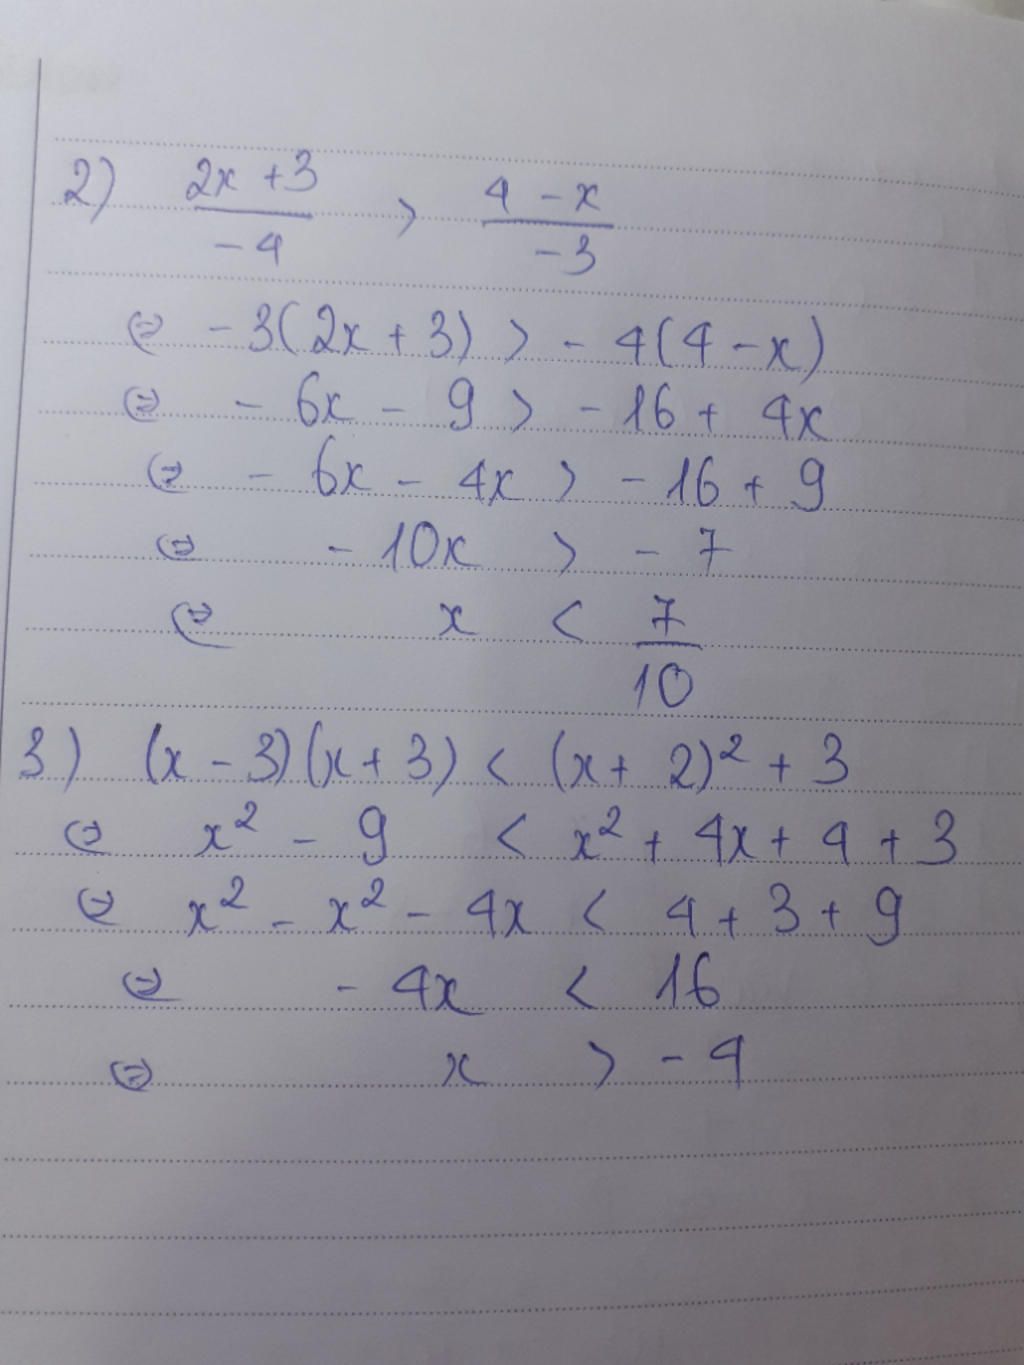 2) (2x + 3)/(-4) > (4 - x)/(-3)
⇔ - 3(2x + 3) > - 4(4 - x)
⇔ - 6x - 9 > - 16 + 4x
⇔ - 6x - 4x > - 16 + 9
⇔ - 10x > - 7
⇔ x < 7/10
3) (x - 3)(x + 3) < (x + 2)² + 3
⇔ x² - 9 < x² + 4x + 4 + 3
⇔ x² - x² - 4x < 4 + 3 + 9
⇔ - 4x < 16
⇔ x > - 4